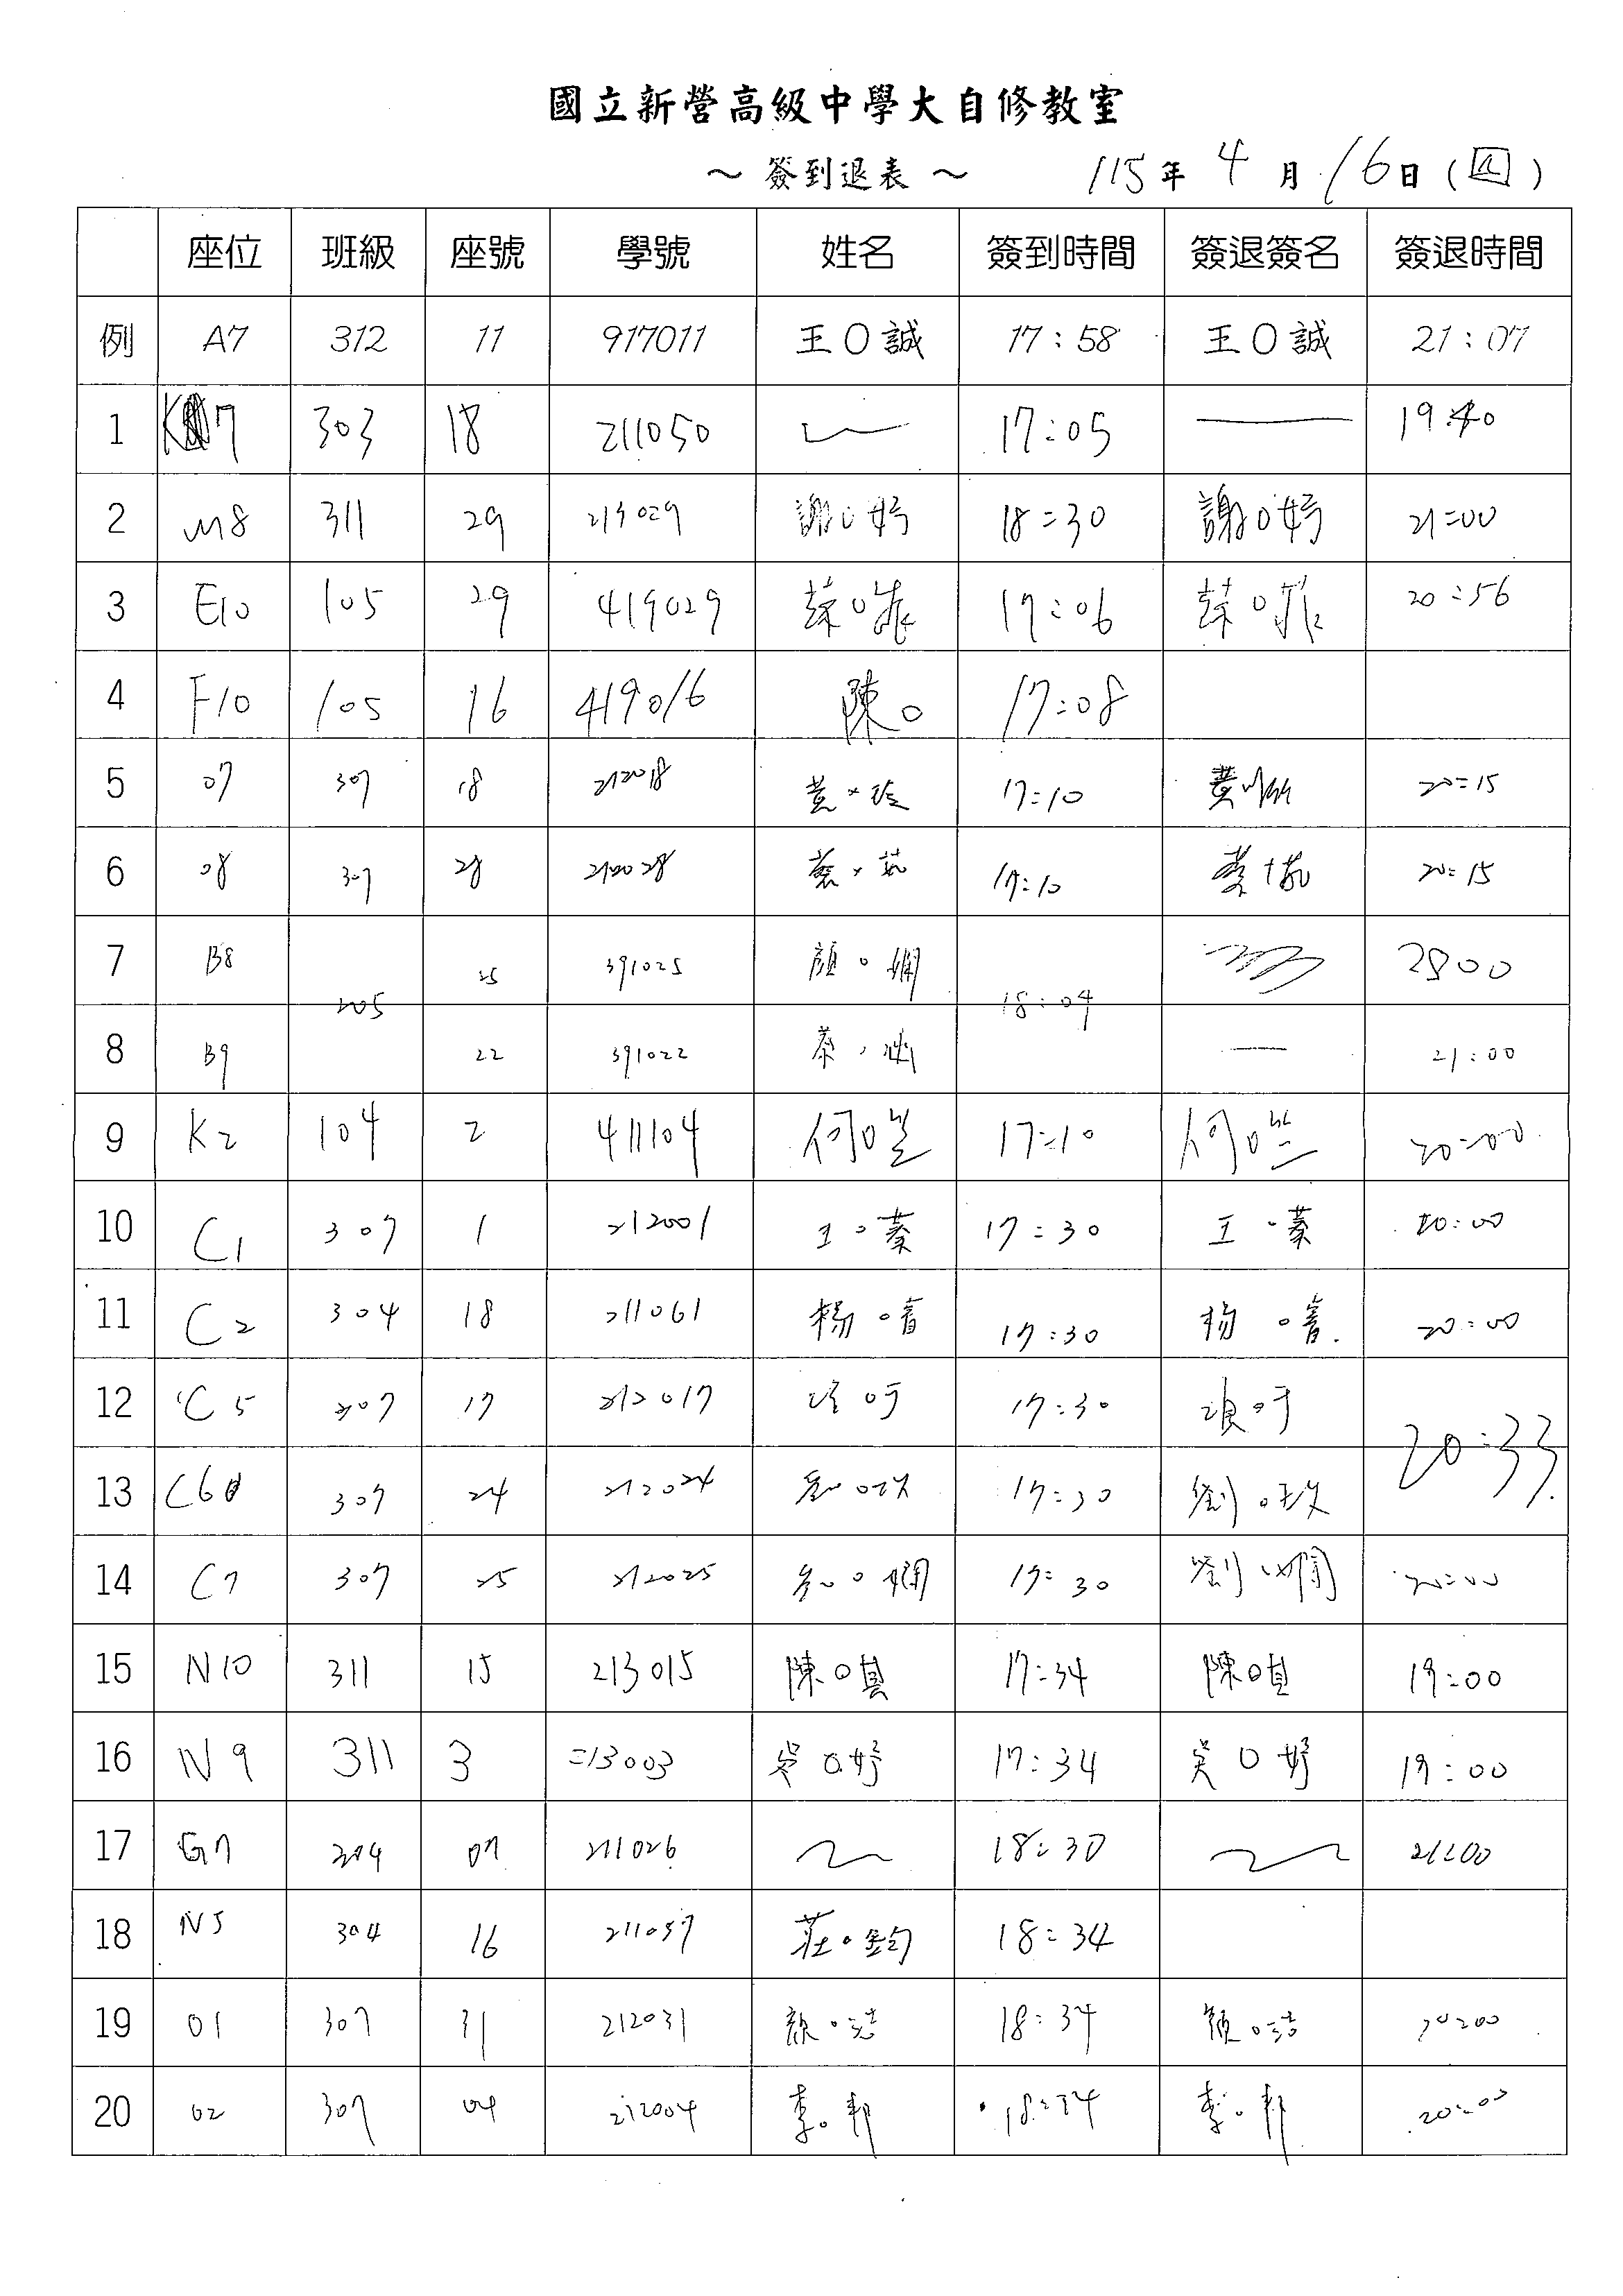 國立新營高級中學大自修教室
～ 簽到退表 ～ 115年 4 月 16日 (四)
座位 班級 座號 學號 姓名 簽到時間 簽退簽名 簽退時間
例 A7 312 11 917011 王〇誠 17:58 王〇誠 21:07
1 K7 303 18 211050 17:05 19:40
2 M8 311 29 213029 謝〇妤 18:30 謝〇妤 21:00
3 E10 105 29 419029 17:06 20:56
4 F10 105 16 419016 陳〇 17:08
5 07 307 18 212018 黃 17:10 黃 20:15
6 08 307 28 28 17:10 20:15
7 B8 205 25 391025 顏〇嫻 18:04
8 B9 22 391022 蔡 21:00
9 K2 104 2 411104 何〇 17:10 何〇 20:00
10 C1 307 1 212001 王〇蓁 17:30 王〇蓁 20:00
11 C2 304 18 211061 楊〇 17:30 楊〇 20:00
12 C5 307 17 212017 17:30 20:33
13 C6 307 24 212024 17:30 劉〇玫
14 C7 307 25 212025 〇嫻 17:30 劉〇嫻 20:00
15 N10 311 15 213015 陳〇真 17:34 陳〇真 19:00
16 N9 311 3 213003 吳〇妤 17:34 吳〇妤 19:00
17 G7 304 07 211026 18:30 21:00
18 N5 304 16 211057 莊〇鈞 18:34
19 01 307 31 212031 顏〇喆 18:34 顏〇喆 20:00
20 02 307 04 212004 李〇邦 18:34 李〇邦 20:00